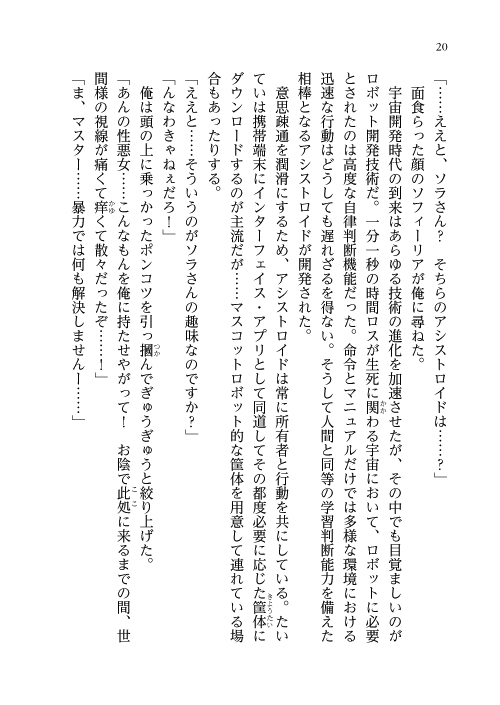 20
「……ええと、ソラさん？　そちらのアシストロイドは……？」
　面食らった顔のソフィーリアが俺に尋ねた。
　宇宙開発時代の到来はあらゆる技術の進化を加速させたが、その中でも目覚ましいのが
ロボット開発技術だ。一分一秒の時間ロスが生死に関わる宇宙において、ロボットに必要
とされたのは高度な自律判断機能だった。命令とマニュアルだけでは多様な環境における
迅速な行動はどうしても遅れざるを得ない。そうして人間と同等の学習判断能力を備えた
相棒となるアシストロイドが開発された。
　意思疎通を潤滑にするため、アシストロイドは常に所有者と行動を共にしている。たい
ていは携帯端末にインターフェイス・アプリとして同道してその都度必要に応じた筐体に
ダウンロードするのが主流だが……マスコットロボット的な筐体を用意して連れている場
合もあったりする。
「ええと……そういうのがソラさんの趣味なのですか？」
「んなわきゃねぇだろ！」
　俺は頭の上に乗っかったポンコツを引っ摑んでぎゅうぎゅうと絞り上げた。
「あんの性悪女……こんなもんを俺に持たせやがって！　お陰で此処に来るまでの間、世
間様の視線が痛くて痒くて散々だったぞ……！」
「ま、マスター……暴力では何も解決しませんー……」